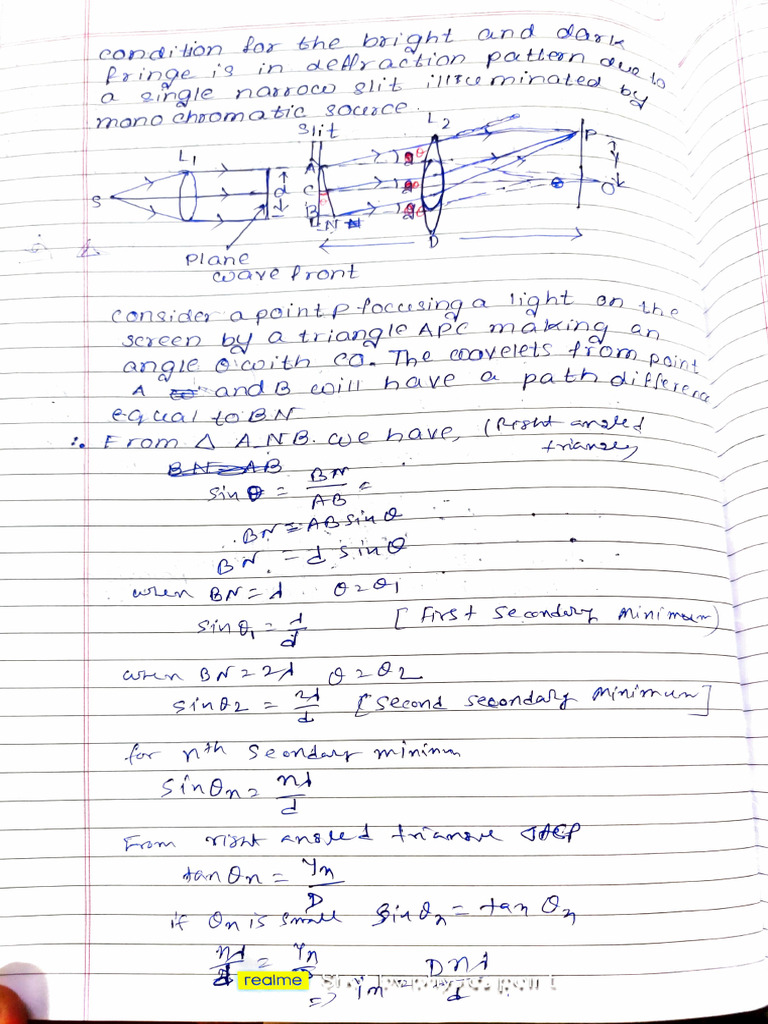 condition for the bright and dark
fringe is in deffraction pattern due to
a single narrow slit illuminated by
mono chromatic source.
Slit
L1
L2
S
A
C
B
N
d
θ
θ
θ
P
y
O
D
plane
wave front
consider a point p focusing a light on the
screen by a triangle APC making an
angle θ with CO. The wavelets from point
A and B will have a path difference
equal to BN
∴ From Δ ANB. we have, (Right angled
triangle)
BN = AB
sin θ = BN/AB =
BN = AB sin θ
BN = d sin θ
when BN = λ θ = θ1
sin θ1 = λ/d [First secondary minimum)
when BN = 2λ θ = θ2
sin θ2 = 2λ/d [second secondary minimum]
for nth secondary minimum
sin θn = nλ/d
From right angled triangle
tan θn = yn/D
if θn is small sin θn = tan θn
nλ/d = yn/D
=> yn = Dnλ/d
realme